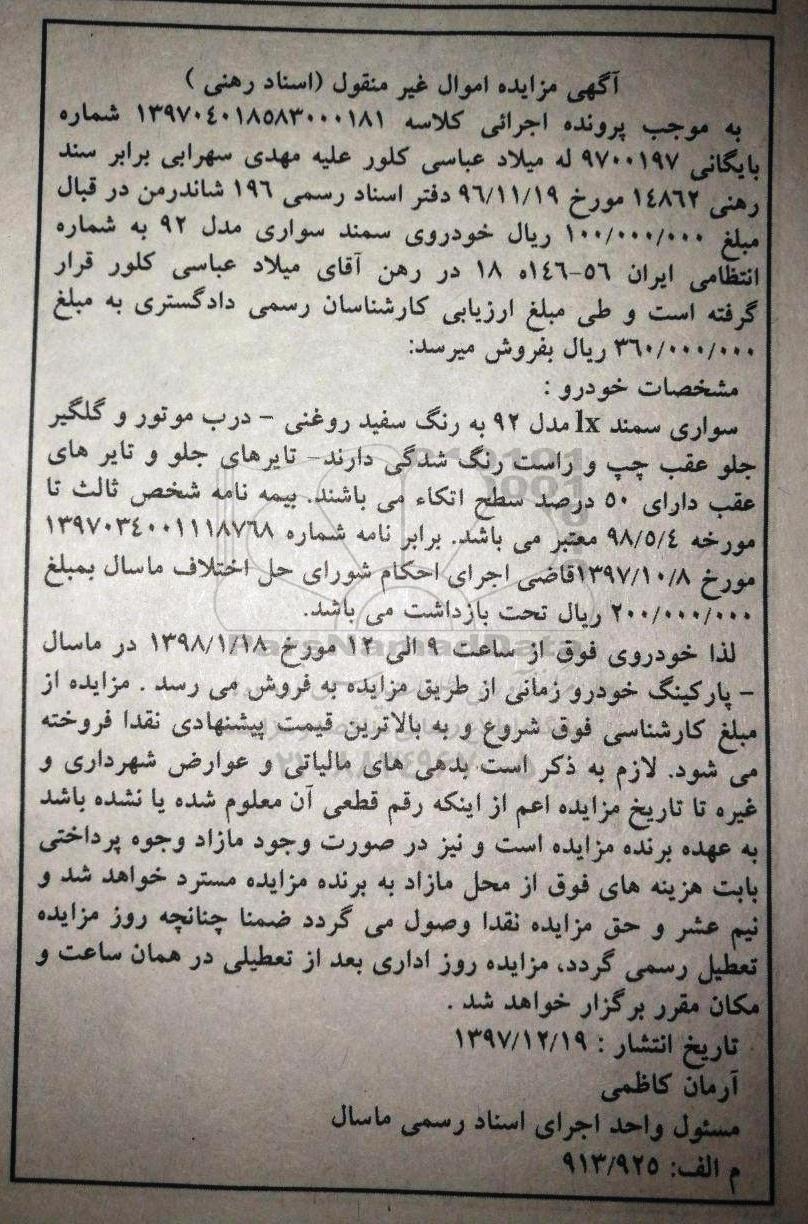 آگهی مزایده اموال غیر منقول (اسناد رهنی )
به موجب پرونده اجرائی کلاسه ۱۳۹۷۰٤۰۱۸۵۸۳۰۰۰۱۸۱ شماره
بایگانی ۹۷۰۰۱۹۷ له میلاد عباسی کلور علیه مهدی سهرابی برابر سند
رهنی ۱٤۸٦۲ مورخ ۹٦/۱۱/۱۹ دفتر اسناد رسمی ۱۹٦ شاندرمن در قبال
مبلغ ۱۰۰/۰۰۰/۰۰۰ ریال خودروی سمند سواری مدل ۹۲ به شماره
انتظامی ایران ۵٦-۱٤٦ه ۱۸ در رهن آقای میلاد عباسی کلور قرار
گرفته است و طی مبلغ ارزیابی کارشناسان رسمی دادگستری به مبلغ
۳٦۰/۰۰۰/۰۰۰ ریال بفروش میرسد:
مشخصات خودرو :
سواری سمند lx مدل ۹۲ به رنگ سفید روغنی - درب موتور و گلگیر
جلو عقب چپ و راست رنگ شدگی دارند- تایرهای جلو و تایر های
عقب دارای ۵۰ درصد سطح اتکاء می باشند. بیمه نامه شخص ثالث تا
مورخه ۹۸/۵/٤ معتبر می باشد. برابر نامه شماره ۱۳۹۷۰۳٤۰۰۱۱۱۸۷٦۸
مورخ ۱۳۹۷/۱۰/۸قاضی اجرای احکام شورای حل اختلاف ماسال بمبلغ
۲۰۰/۰۰۰/۰۰۰ ریال تحت بازداشت می باشد.
لذا خودروی فوق از ساعت ۹ الی ۱۲ مورخ ۱۳۹۸/۱/۱۸ در ماسال
- پارکینگ خودرو زمانی از طریق مزایده به فروش می رسد . مزایده از
مبلغ کارشناسی فوق شروع و به بالاترین قیمت پیشنهادی نقدا فروخته
می شود. لازم به ذکر است بدهی های مالیاتی و عوارض شهرداری و
غیره تا تاریخ مزایده اعم از اینکه رقم قطعی آن معلوم شده یا نشده باشد
به عهده برنده مزایده است و نیز در صورت وجود مازاد وجوه پرداختی
بابت هزینه های فوق از محل مازاد به برنده مزایده مسترد خواهد شد و
نیم عشر و حق مزایده نقدا وصول می گردد ضمنا چنانچه روز مزایده
تعطیل رسمی گردد، مزایده روز اداری بعد از تعطیلی در همان ساعت و
مکان مقرر برگزار خواهد شد .
تاریخ انتشار : ۱۳۹۷/۱۲/۱۹
آرمان کاظمی
مسئول واحد اجرای اسناد رسمی ماسال
م الف: ۹۱۳/۹۲۵
ParsNamadData